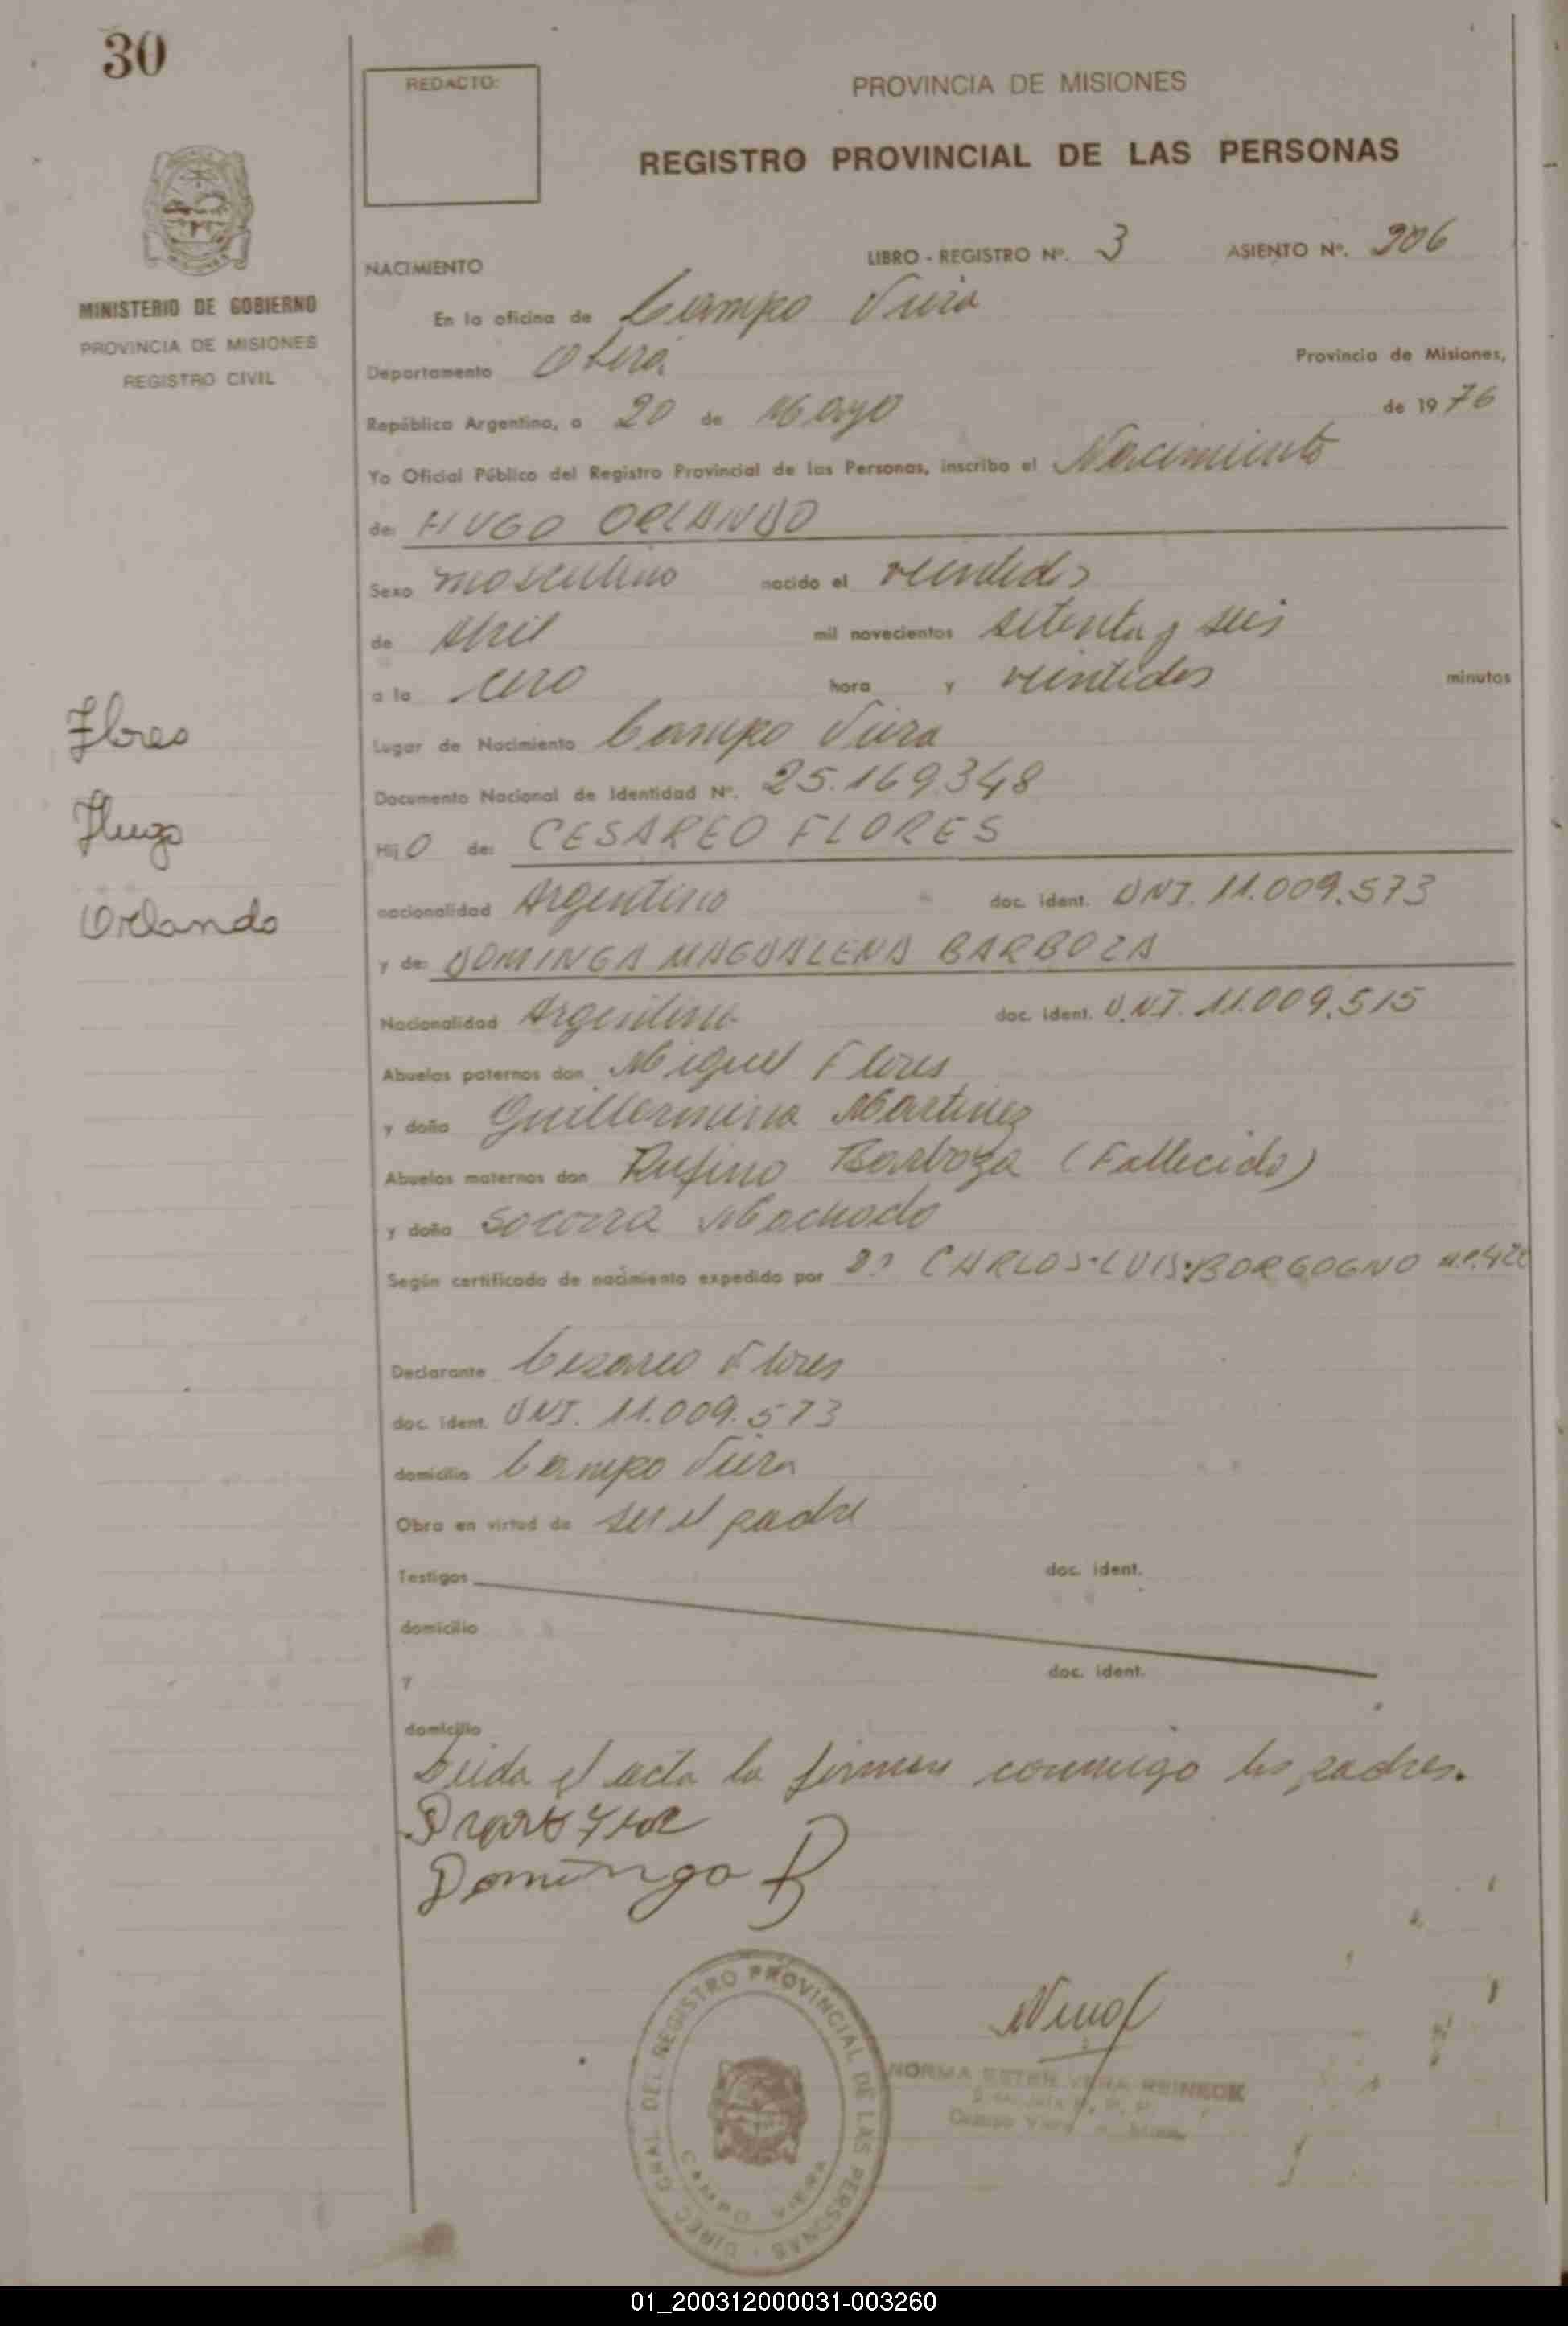 30
REDACTO:
PROVINCIA DE MISIONES
REGISTRO PROVINCIAL DE LAS PERSONAS
MINISTERIO DE GOBIERNO
PROVINCIA DE MISIONES
REGISTRO CIVIL
NACIMIENTO LIBRO - REGISTRO Nº. 3 ASIENTO Nº. 206
En la oficina de Campo Viera
Departamento Oberá Provincia de Misiones,
República Argentina, a 20 de Mayo de 1976
Yo Oficial Público del Registro Provincial de las Personas, inscribo el Nacimiento
de: HUGO ORLANDO
Sexo masculino nacido el veintidos
de Abril mil novecientos setenta y seis
a la cero hora y veintidos minutos
Lugar de Nacimiento Campo Viera
Documento Nacional de Identidad Nº. 25.169.348
Hijo de: CESAREO FLORES
nacionalidad Argentino doc. ident. DNI. 11.009.573
y de: DOMINGA MAGDALENA BARBOZA
Nacionalidad Argentina doc. ident. D.N.I. 11.009.515
Abuelos paternos don Miguel Flores
y doña Guillermina Martinez
Abuelos maternos don Rufino Barboza (Fallecido)
y doña Socorra Machado
Según certificado de nacimiento expedido por Dr CARLOS LUIS BORGOGNO
Declarante Cesareo Flores
doc. ident. DNI. 11.009.573
domicilio Campo Viera
Obra en virtud de ser el padre
Testigos doc. ident.
domicilio
y doc. ident.
domicilio
Leida el acta la firman conmigo los padres.
Dominga B
Flores
Hugo
Orlando
DIREC. GRAL DEL REGISTRO PROVINCIAL DE LAS PERSONAS
CAMPO VIERA
NORMA ESTER VERA REINECK
Campo Viera
01_200312000031-003260